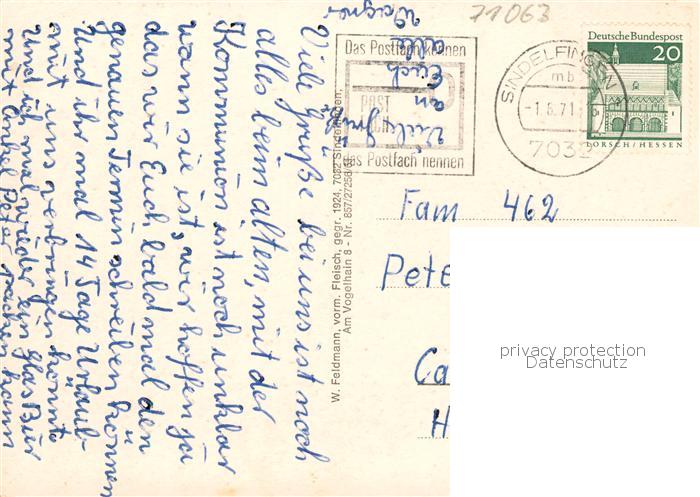 Viele Grüße bei uns ist noch
alles beim alten, mit der
Kommunion ist noch unklar
wann sie ist, wir hoffen ja
das wir Euch bald mal den
genauen Termin schreiben können
Und ihr mal 14 Tage Urlaub
mit uns verbringen könnt
und ich mal wieder ein glas Bier
mit Onkel Peter machen kann
Viele Grüße
an
Euch
alle
Wagner
71063
Das Postfach kennen
POST
das Postfach nennen
SINDELFINGEN
mb
-1.6.71
7032
Deutsche Bundespost
20
LORSCH/HESSEN
W. Feldmann, vorm. Fleisch, gegr. 1924, 7032 Sindelfingen,
Am Vogelhain 8 - Nr. 857/27256/
Fam 462
Pete
Ca
H
privacy protection
Datenschutz